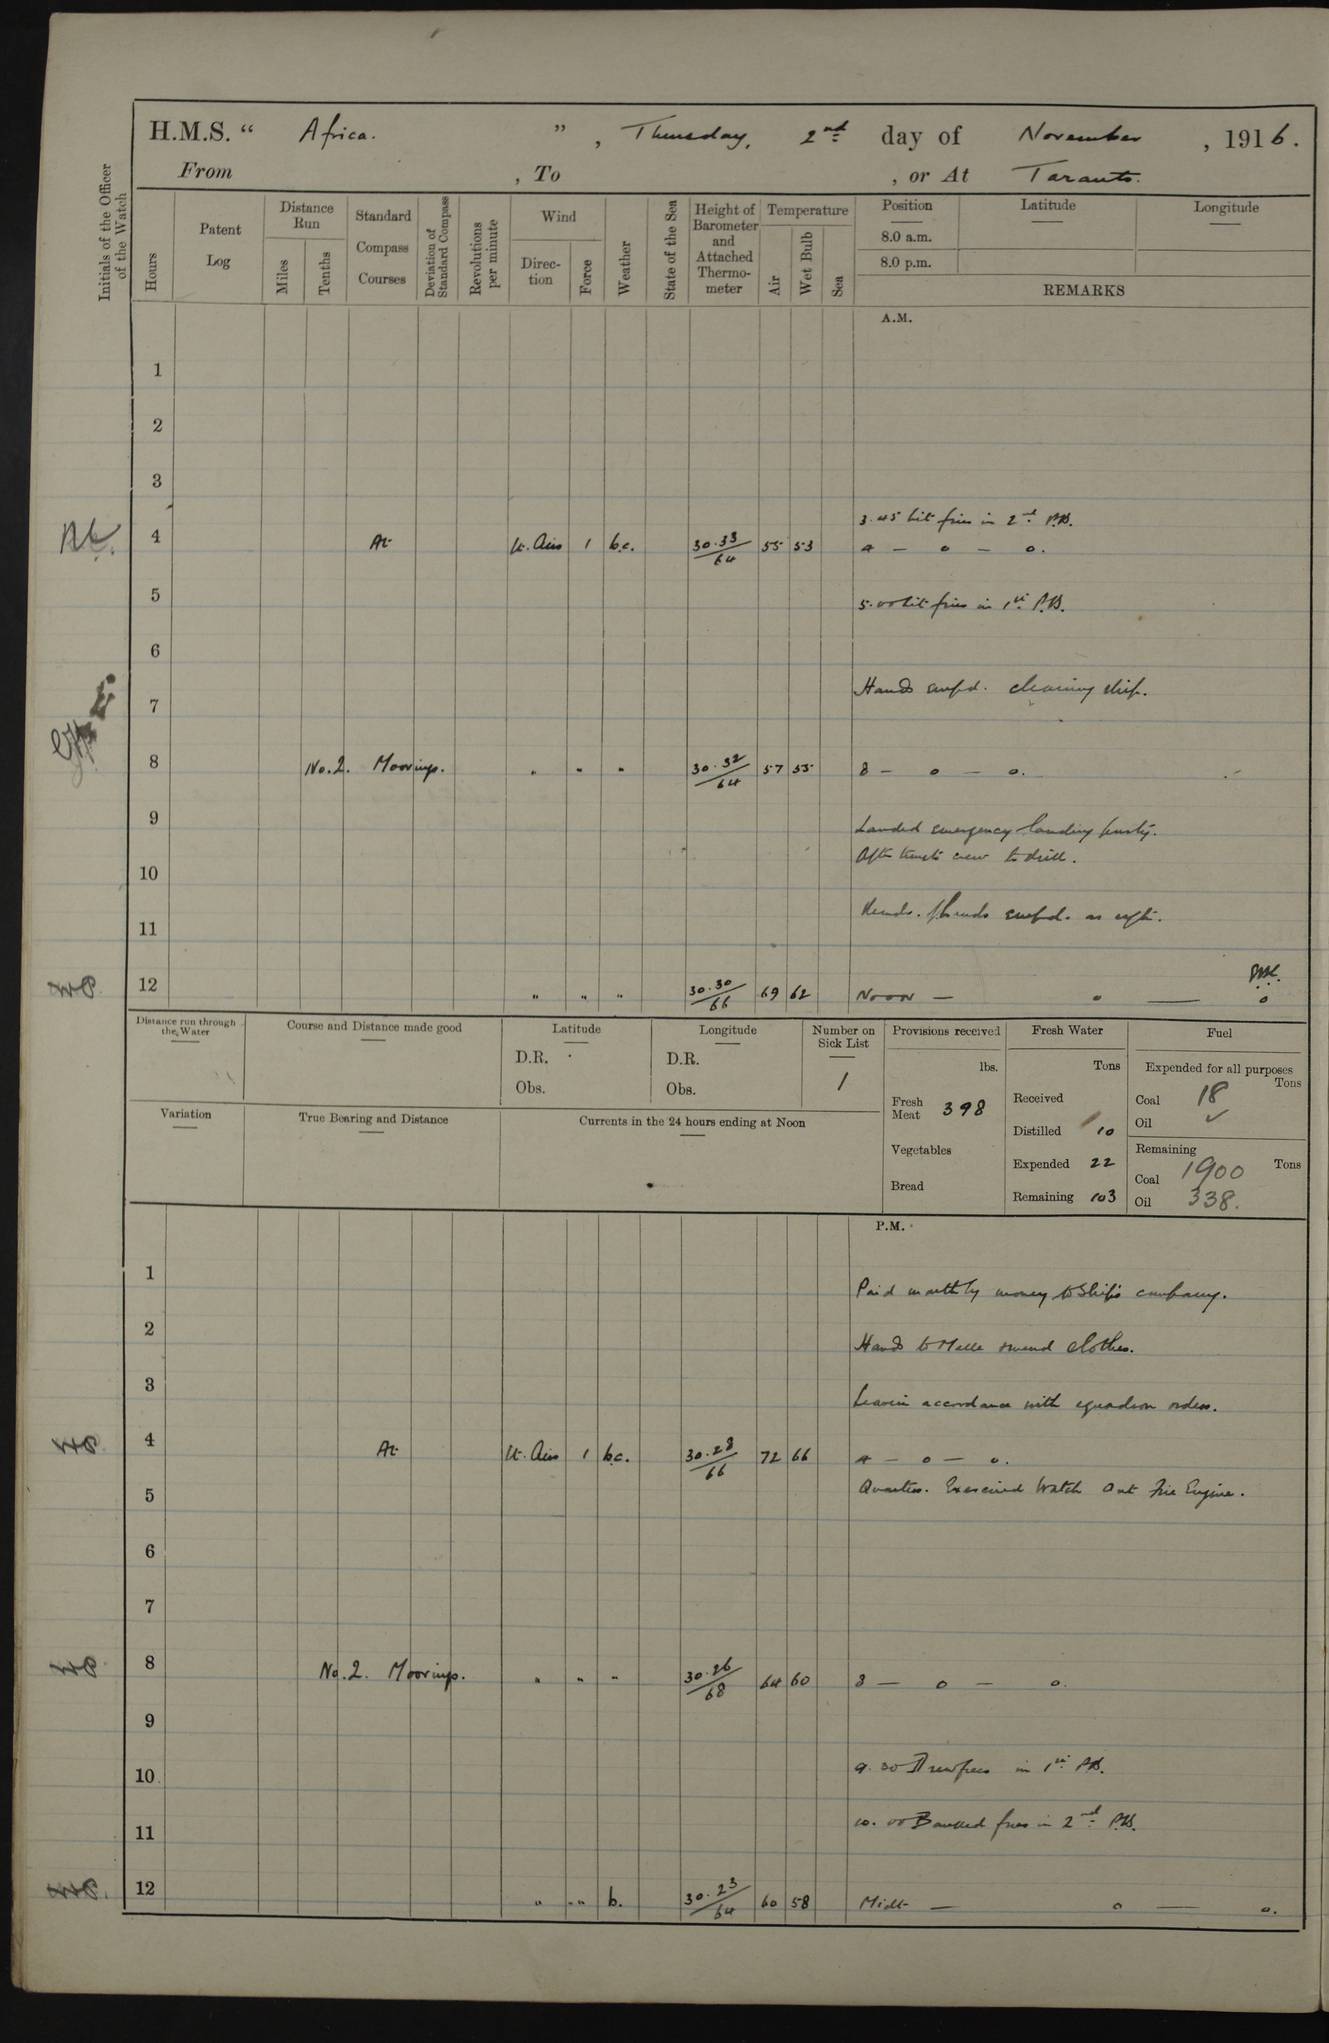 H.M.S. “ Africa. ” , Thursday, 2nd day of November , 1916.
From , To , or At Taranto.
Initials of the Officer of the Watch
Hours
Patent Log
Distance Run
Miles
Tenths
Standard Compass Courses
Deviation of Standard Compass
Revolutions per minute
Wind
Direction
Force
Weather
State of the Sea
Height of Barometer and Attached Thermometer
Temperature
Air
Wet Bulb
Sea
Position Latitude Longitude
8.0 a.m.
8.0 p.m.
REMARKS
A.M.
1
2
3
3.45 Lit fires in 2nd P.B.
4 At Lt. Airs 1 b.c. 30.33/64 55 53 4 — o — o.
5 5.00 Lit fires in 1st P.B.
6
Hands empd. cleaning ship.
7
8 No. 2. Moorings. " " " 30.32/64 57 55 8 — o — o.
9
Landed emergency landing party.
After turrets crew to drill.
10
Hands empd. as reqte.
11
12 " " " 30.30/66 69 62 Noon — o — o
Distance run through the Water
Course and Distance made good
Latitude
D.R.
Obs.
Longitude
D.R.
Obs.
Number on Sick List
1
Provisions received
lbs.
Fresh Meat 398
Vegetables
Bread
Fresh Water
Tons
Received
Distilled 10
Expended 22
Remaining 103
Fuel
Expended for all purposes
Tons
Coal 18
Oil ✓
Remaining
Tons
Coal 1900
Oil 338.
Variation
True Bearing and Distance
Currents in the 24 hours ending at Noon
P.M.
1
Paid monthly money to Ship's company.
2
Hands to Make & mend clothes.
3
Leave in accordance with squadron orders.
4 At Lt. Airs 1 b.c. 30.28/66 72 66 4 — o — o.
Quarters. Exercised Watch Out Fire Engine.
5
6
7
8 No. 2. Moorings. " " " 30.26/68 64 60 8 — o — o.
9
9.30 Drew fires in 1st P.B.
10
10.00 Banked fires in 2nd P.B.
11
12 " " b. 30.23/64 60 58 Midt — o — o.